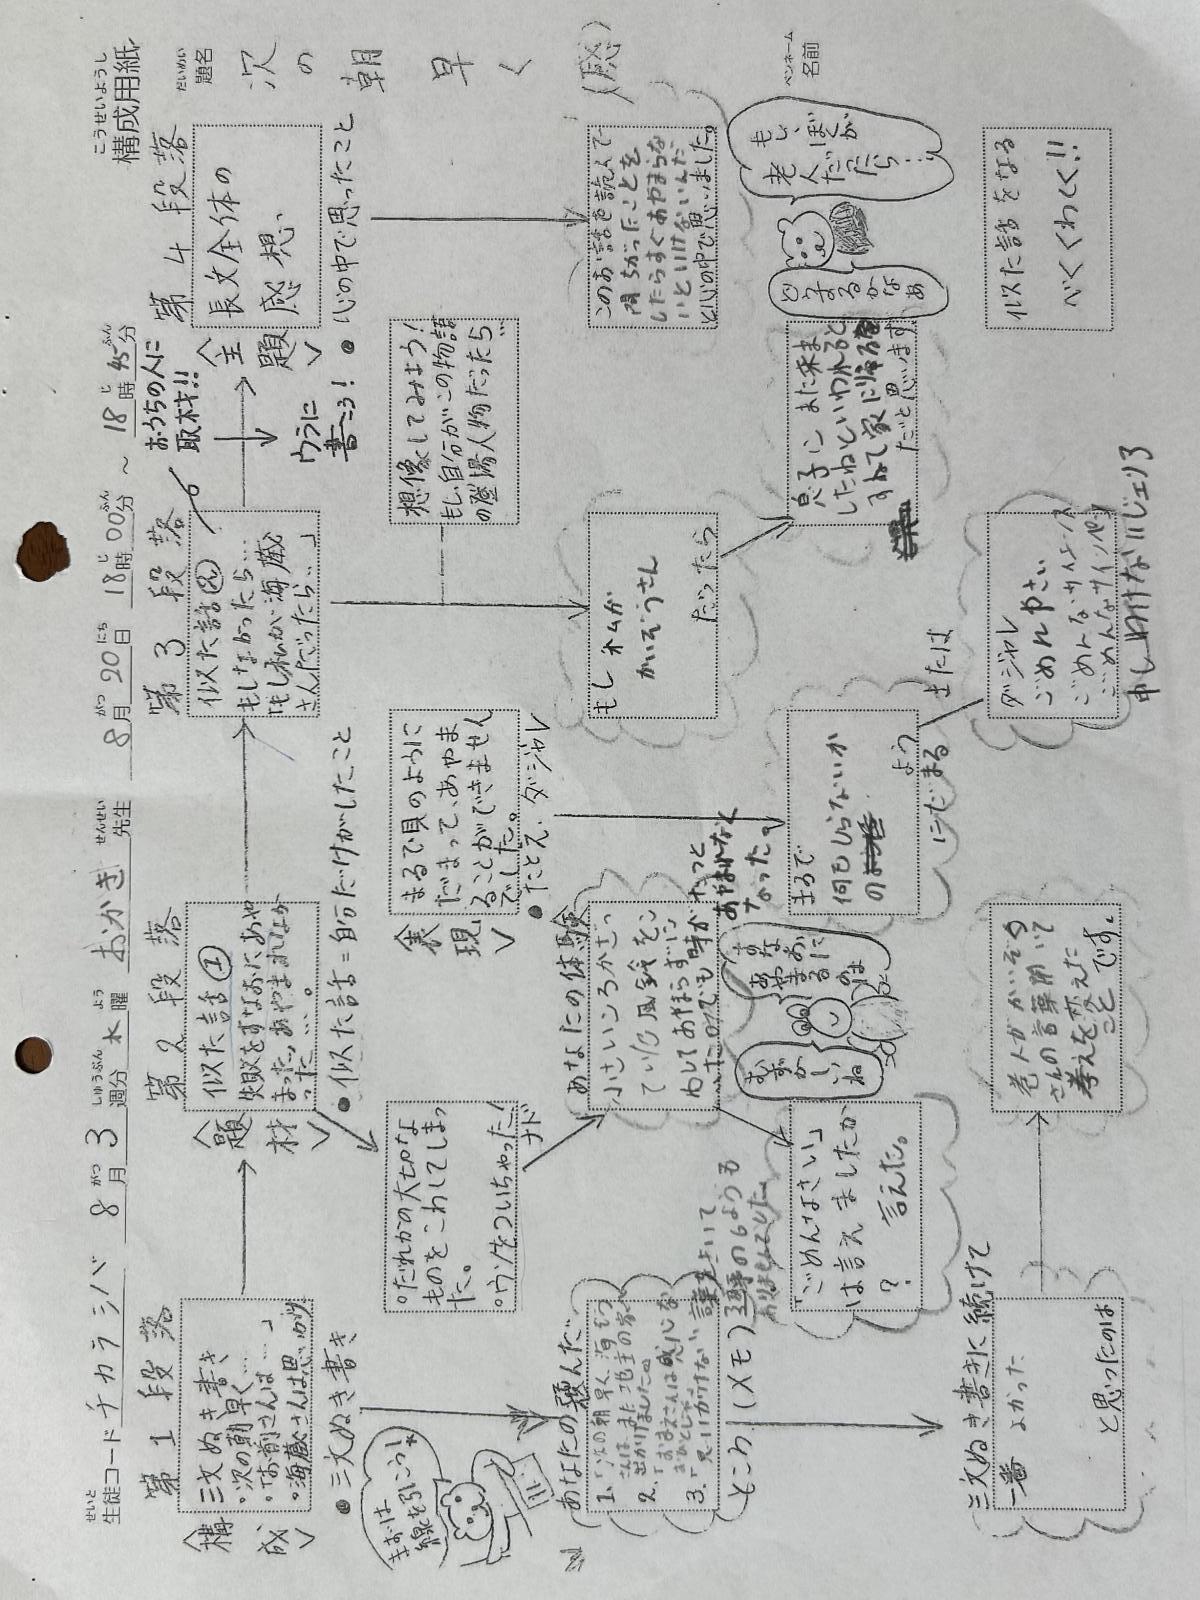 構成用紙
こうせいようし
生徒コード チカラシバ 8月3週分 水曜 おかき先生 8月20日 18時00分 ~ 18時45分
題名
だいめい
次の朝早く(感)
ペンネーム
名前
第1段落
第2段落
第3段落
第4段落
<構成>
三文ぬき書き
・次の朝早く…
・「お前さんは…」
・海蔵さんは思いがけ
<題材>
似た話①
失敗をすなおにあや
まったッ、あやまれなか
った…。
似た話②
もしなかったら…
「もし私が海蔵
さんだったら…」
おうちの人に
取材!!
ウラに
書こう!
<主題>
長文全体の
感想
●三文ぬき書き
●似た話=自分だけがしたこと
●心の中で思ったこと
まずは
線を引こう!
○だれかの大切な
ものをこわしてしまっ
た。
○ウソをついちゃった!
ナド
<表現>
まるで貝のように
だまって、あやま
ることができません
でした。
●たとえ・ダジャレ
想像してみよう!
もし、自分がこの物語
の登場人物だったら…
あなたの選んだ
1.「次の朝早く、海ぞう
さんは、また地主の家へ
出かけました。」
2.「おまえさんは感心な
おひとじゃ。」
3.「思いがけない
ところ (メモ)
あなたの体験
小さいころかざっ
ていた風鈴をこ
わしてあやまらずに
いたのでも時がたつと
あやまれなく
なった。
もしオムが
かいぞうさん
だったら
このお話を読んで
間ちがったことを
したらすぐあやまらな
いといけないんだ
と心の中で思いました。
「ごめんなさい」
は言えましたか
?
言えた。
むずかしいね
すなおに
あやまるのは
まるで
何もしらないか
のよう
にだまる
または
ダジャレ
ごめんやさい
ごめんなサイエンス
ごめんなサインペン
申しわけないじぇリ3
息子にまた来ま
したねといわれると
すねて家に帰る
だと思います
もし、ぼくが
老人だったら…
どうするかなぁ
三文ぬき書きに続けて
一番よかった
と思ったのは
老人がかいぞう
さんの言葉聞いて
考えを変えた
こと です。
似た話をなる
べく くわしく!!